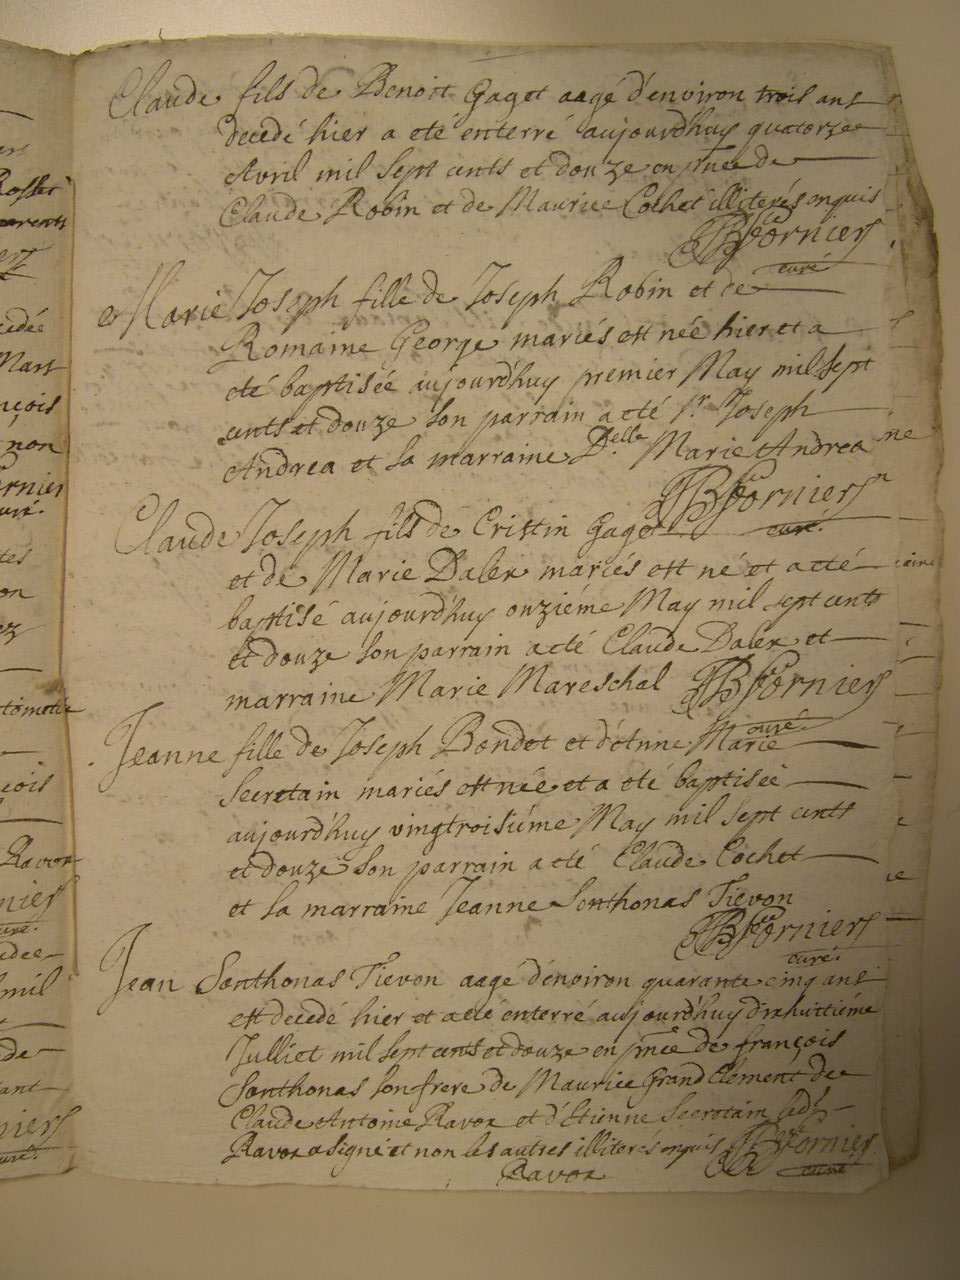 Claude fils de Benoit Gaget aagé d'environ trois ans
decedé hier a eté enterré aujourd'huy quatorze
Avril mil sept cents et douze en pnce de
Claude Robin et de Maurice Cochet illiterés enquis
Fornier
curé
Marie Joseph fille de Joseph Robin et de
Romaine George mariés est née hier et a
eté baptisée aujourd'huy premier May mil sept
cents et douze son parrain a eté Sr Joseph
Andrea et sa marraine Delle Marie Andrea
Fornier
curé.
Claude Joseph fils de Cristin Gaget
et de Marie Dalex mariés est né et a eté
baptisé aujourd'huy onziéme May mil sept cents
et douze son parrain a eté Claude Dalex et
marraine Marie Mareschal Fornier
curé
Jeanne fille de Joseph Bondet et d'Anne Marie
Secretain mariés est née et a eté baptisée
aujourd'huy vingtroisiéme May mil sept cents
et douze son parrain a eté Claude Cochet
et sa marraine Jeanne Sonthonas Tievon
Fornier
curé.
Jean Sonthonas Tievon aagé d'environ quarante cinq ans
est decedé hier et a eté enterré aujourd'huy dixhuittiéme
Julliet mil sept cents et douze en pnce de françois
Sonthonas son frere de Maurice Grand Clement de
Claude Antoine Ravox et d'Etienne Secretain ledt
Ravox a signé et non les autres illiterés enquis Fornier
Ravox curé